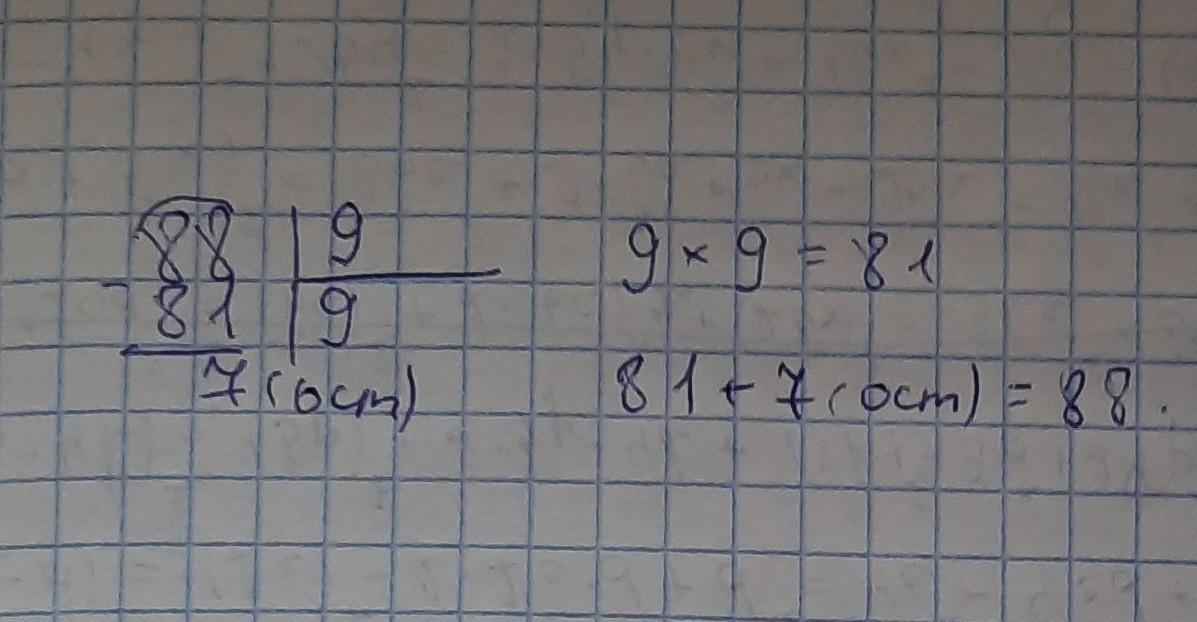 88 | 9
- 81 | 9
7 (ост)
9 × 9 = 81
81 + 7 (ост) = 88.